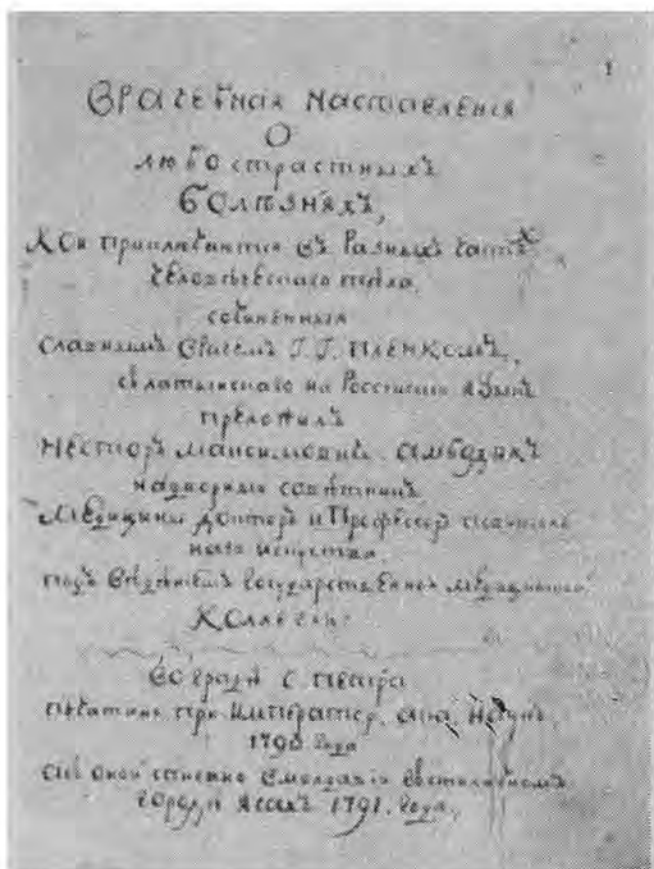 1
Врачебная наставления
О
любострастныхъ
болѣзняхъ,
Кои приключаются въ разныхъ част хъ
человѣческаго тѣла,
сочиненныя
славнымъ врачемъ І. І. Пленкомъ,
съ латынскаго на Россииски языкъ
преложилъ
Несторъ Максимовичъ Амбодикъ
надворныи совѣтникъ
Медицины докторъ и Професоръ
наго искуства
подъ государственнои медицинскои
Коллегии
во градѣ С. Петра
печатано при Император.
1790 года
городѣ Ясах 1791. года,